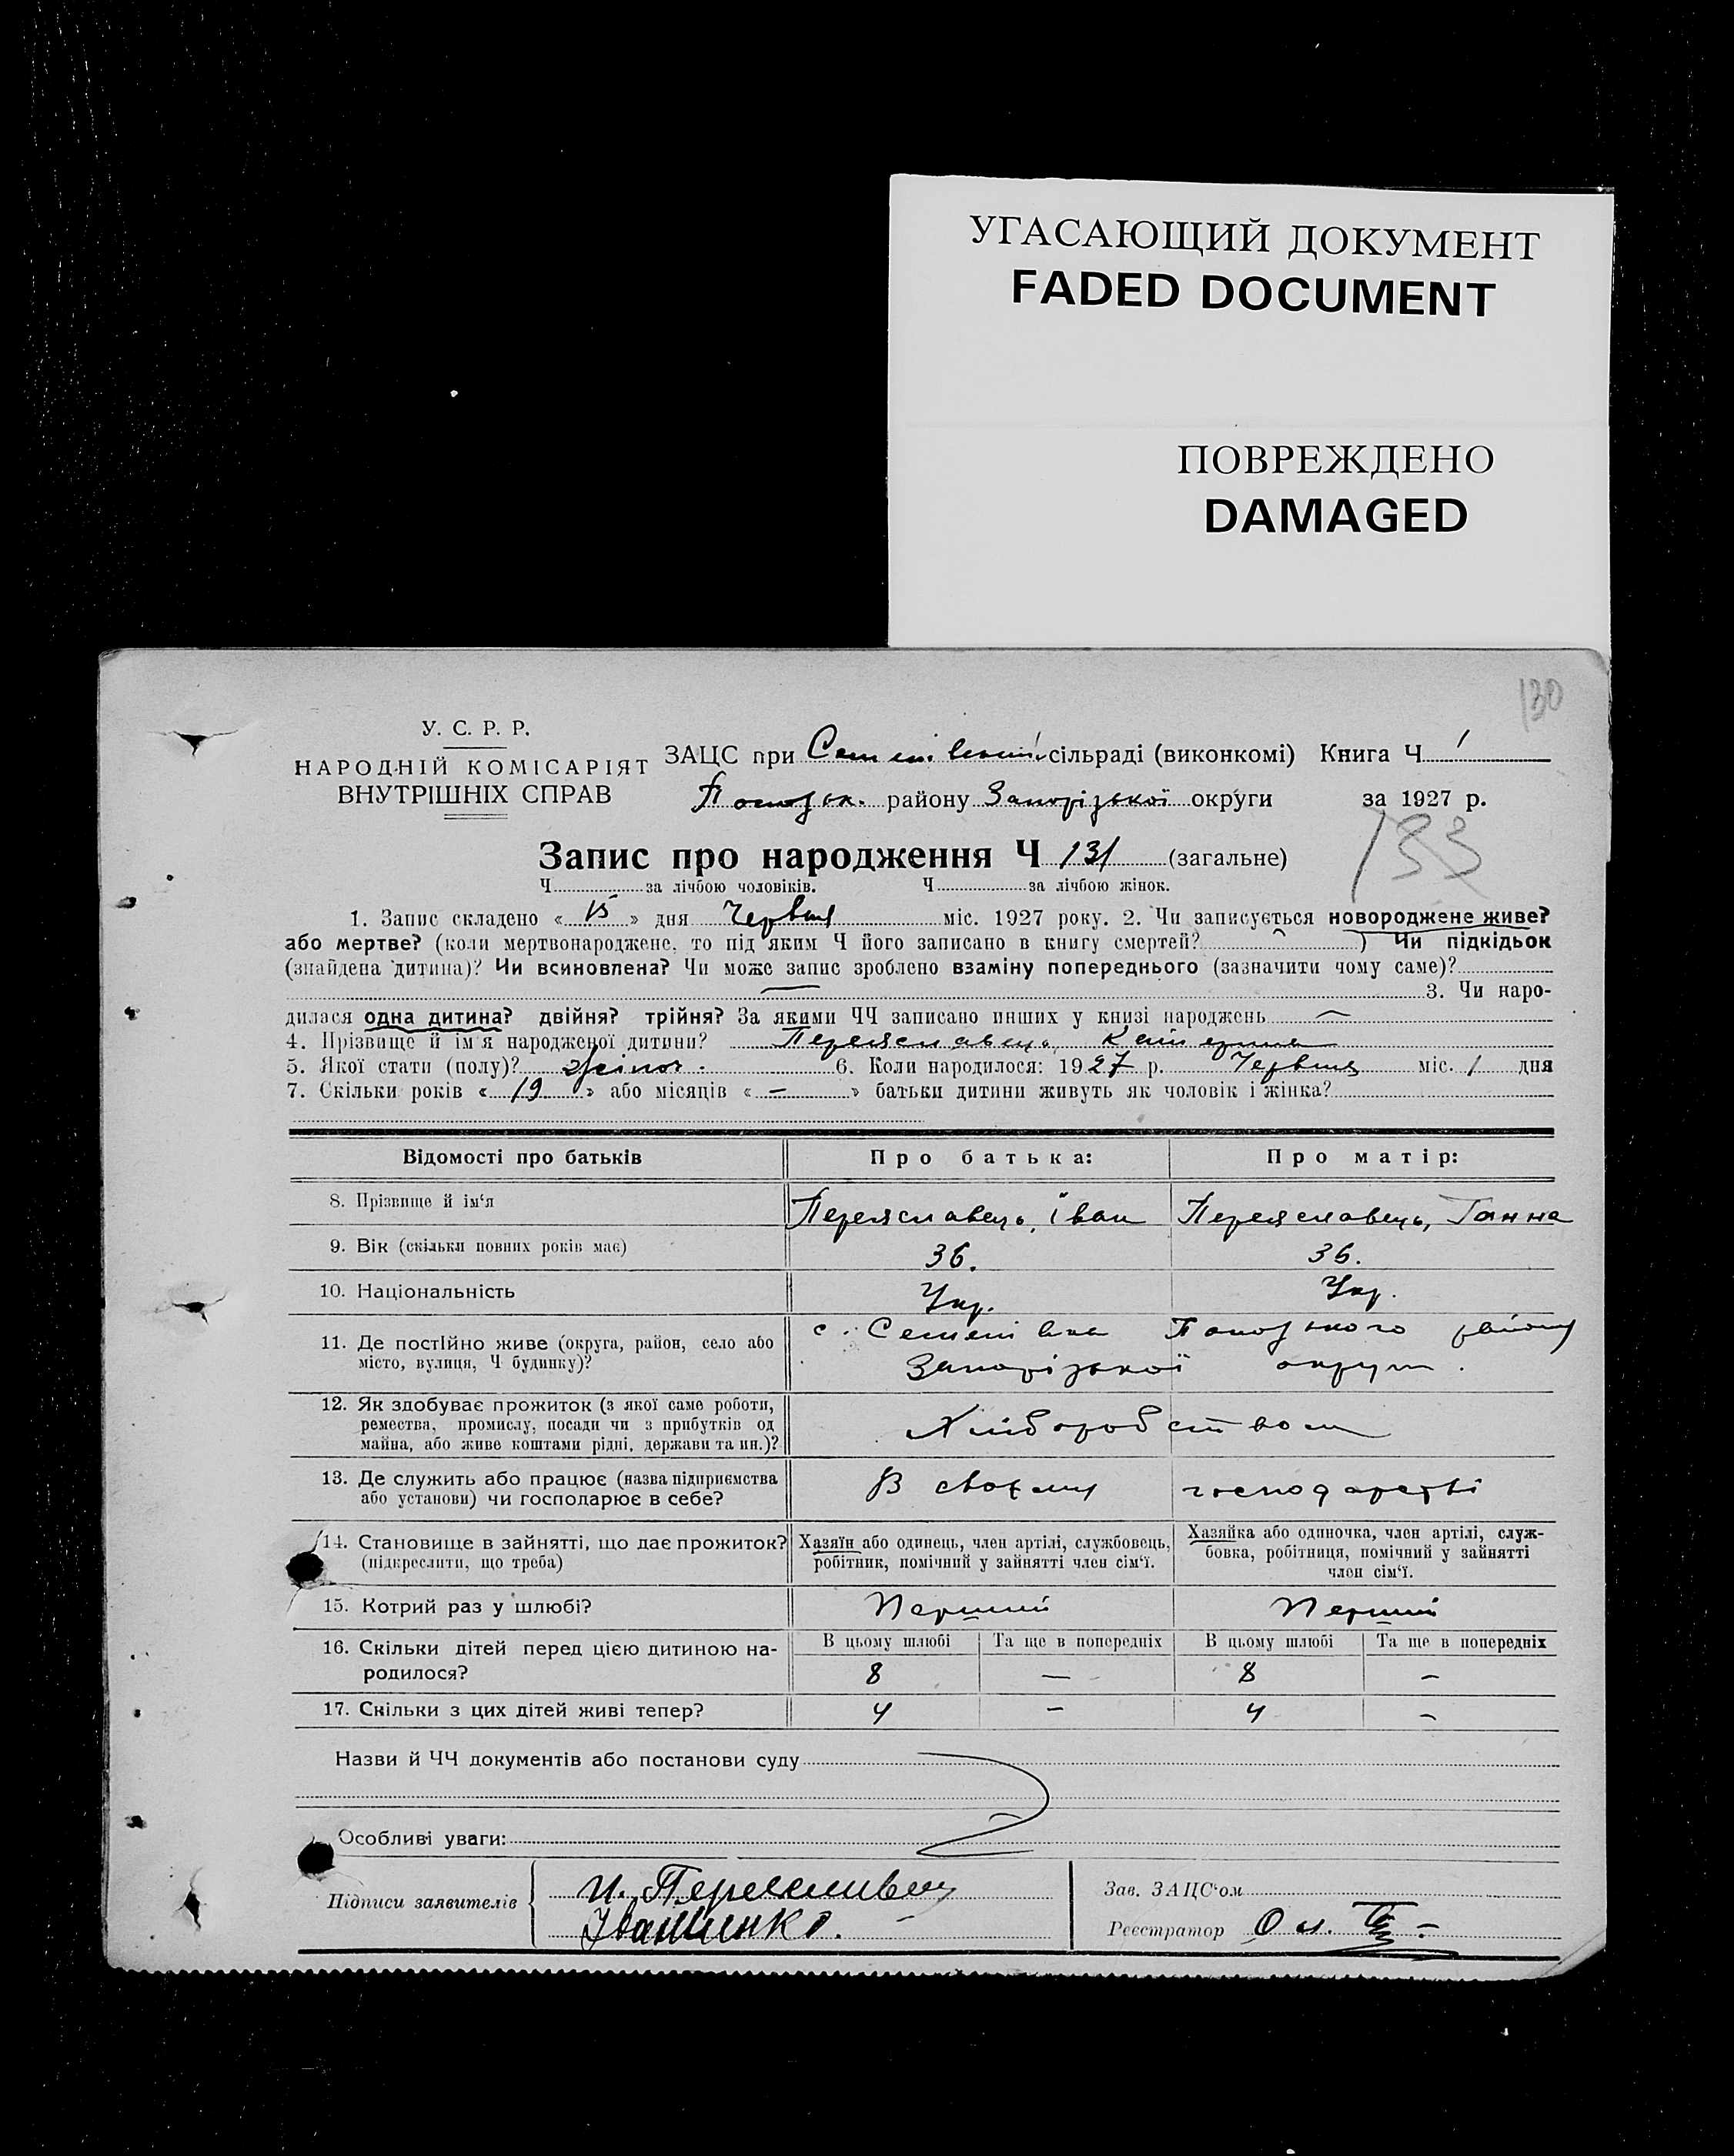 УГАСАЮЩИЙ ДОКУМЕНТ
FADED DOCUMENT
ПОВРЕЖДЕНО
DAMAGED
130
У. С. Р. Р.
НАРОДНІЙ КОМІСАРІЯТ
ВНУТРІШНІХ СПРАВ
ЗАЦС при Семенівській сільраді (виконкомі) Книга Ч 1
району Запорізької округи за 1927 р.
133
Запис про народження Ч 131 (загальне)
Ч за лічбою чоловіків. Ч за лічбою жінок.
1. Запис складено « 15 » дня Червня міс. 1927 року. 2. Чи записується новороджене живе?
або мертве? (коли мертвонароджене, то під яким Ч його записано в книгу смертей? ) Чи підкідьок
(знайдена дитина)? Чи всиновлена? Чи може запис зроблено взаміну попереднього (зазначити чому саме)?
3. Чи наро-
дилася одна дитина? двійня? трійня? За якими ЧЧ записано инших у книзі народжень
4. Прізвище й ім'я народженої дитини? Переяславець, Катерина
5. Якої стати (полу)? жіноч. 6. Коли народилося: 1927 р. Червня міс. 1 дня
7. Скільки років « 19 » або місяців « – » батьки дитини живуть як чоловік і жінка?
Відомості про батьків Про батька: Про матір:
8. Прізвище й ім‘я Переяславець, Іван Переяславець, Ганна
9. Вік (скільки повних років має) 36. 36.
10. Національність Укр. Укр.
11. Де постійно живе (округа, район, село або с. Семенівка району
місто, вулиця, Ч будинку)? Запорізької округи.
12. Як здобуває прожиток (з якої саме роботи,
ремества, промислу, посади чи з прибутків од Хліборобством
майна, або живе коштами рідні, держави та ин.)?
13. Де служить або працює (назва підприємства В своєму господарстві
або установи) чи господарює в себе?
14. Становище в зайнятті, що дає прожиток? Хазяїн або одинець, член артілі, службовець, Хазяйка або одиночка, член артілі, служ-
(підкреслити, що треба) робітник, помічний у зайнятті член сім‘ї. бовка, робітниця, помічний у зайнятті
член сім‘ї.
15. Котрий раз у шлюбі? Перший Перший
16. Скільки дітей перед цією дитиною на- В цьому шлюбі Та ще в попередніх В цьому шлюбі Та ще в попередніх
родилося? 8 – 8 –
17. Скільки з цих дітей живі тепер? 4 – 4 –
Назви й ЧЧ документів або постанови суду
Особливі уваги:
Підписи заявителів И. Переяславец
Іваненко.
Зав. ЗАЦС‘ом
Реєстратор